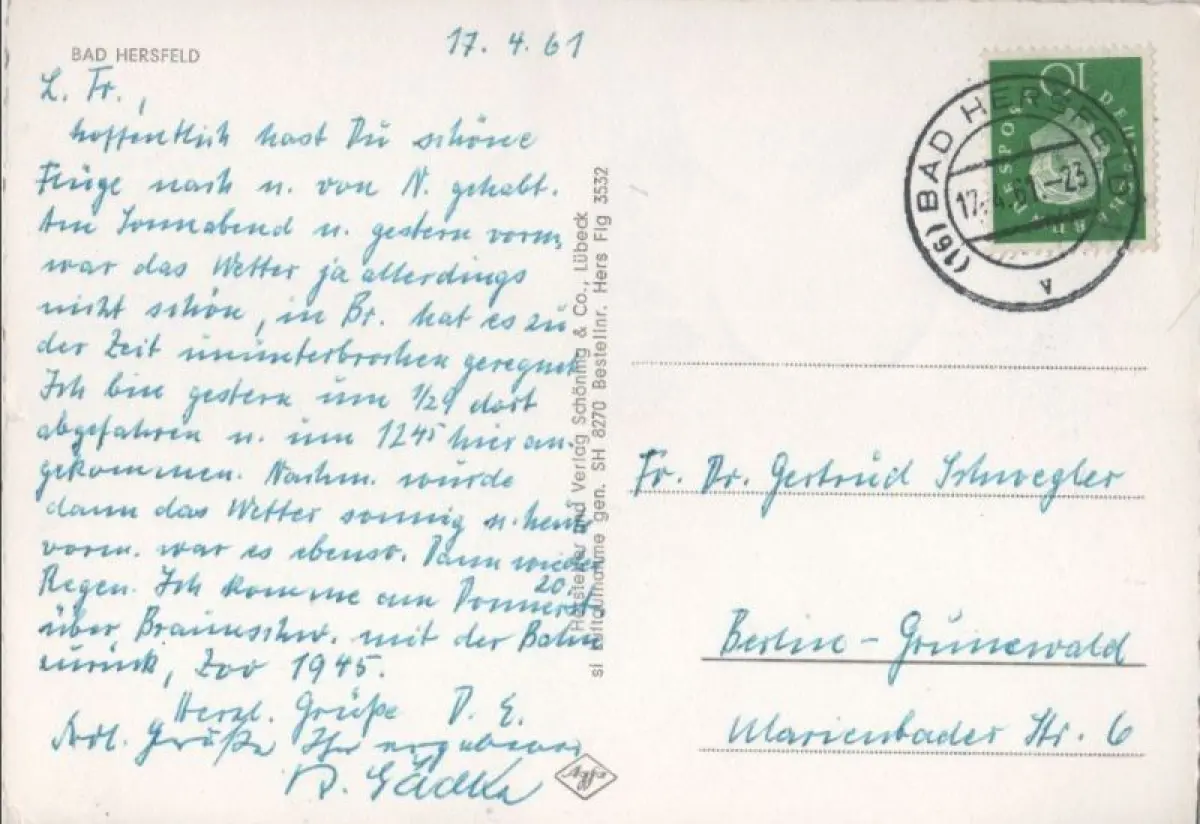 BAD HERSFELD
17. 4. 61
L. Fr.,
hoffentlich hast Du schöne
Flüge nach u. von N. gehabt.
Am Sonnabend u. gestern vorm.
war das Wetter ja allerdings
nicht schön, in Br. hat es zu
der Zeit ununterbrochen geregnet.
Ich bin gestern um 1/29 dort
abgefahren u. um 1245 hier an-
gekommen. Nachm. wurde
dann das Wetter sonnig u. heute
vorm. war es ebenso. Dann wieder
Regen. Ich komme am Donnerst.
20.
über Braunschw. mit der Bahn
zurück, Zoo 1945.
Herzl. Grüße D. E.
Grüße Ihr ergebener
Hersteller und Verlag Schöning & Co., Lübeck
sl Luftaufnahme gen. SH 8270 Bestellnr. Hers Flg 3532
Agfa
10
DEUTSCHE BUNDESPOST
(16) BAD HERSFELD
17.-4.61.-23
a
Fr. Dr. Gertrud Schwegler
Berlin-Grunewald
Marienbader Str. 6